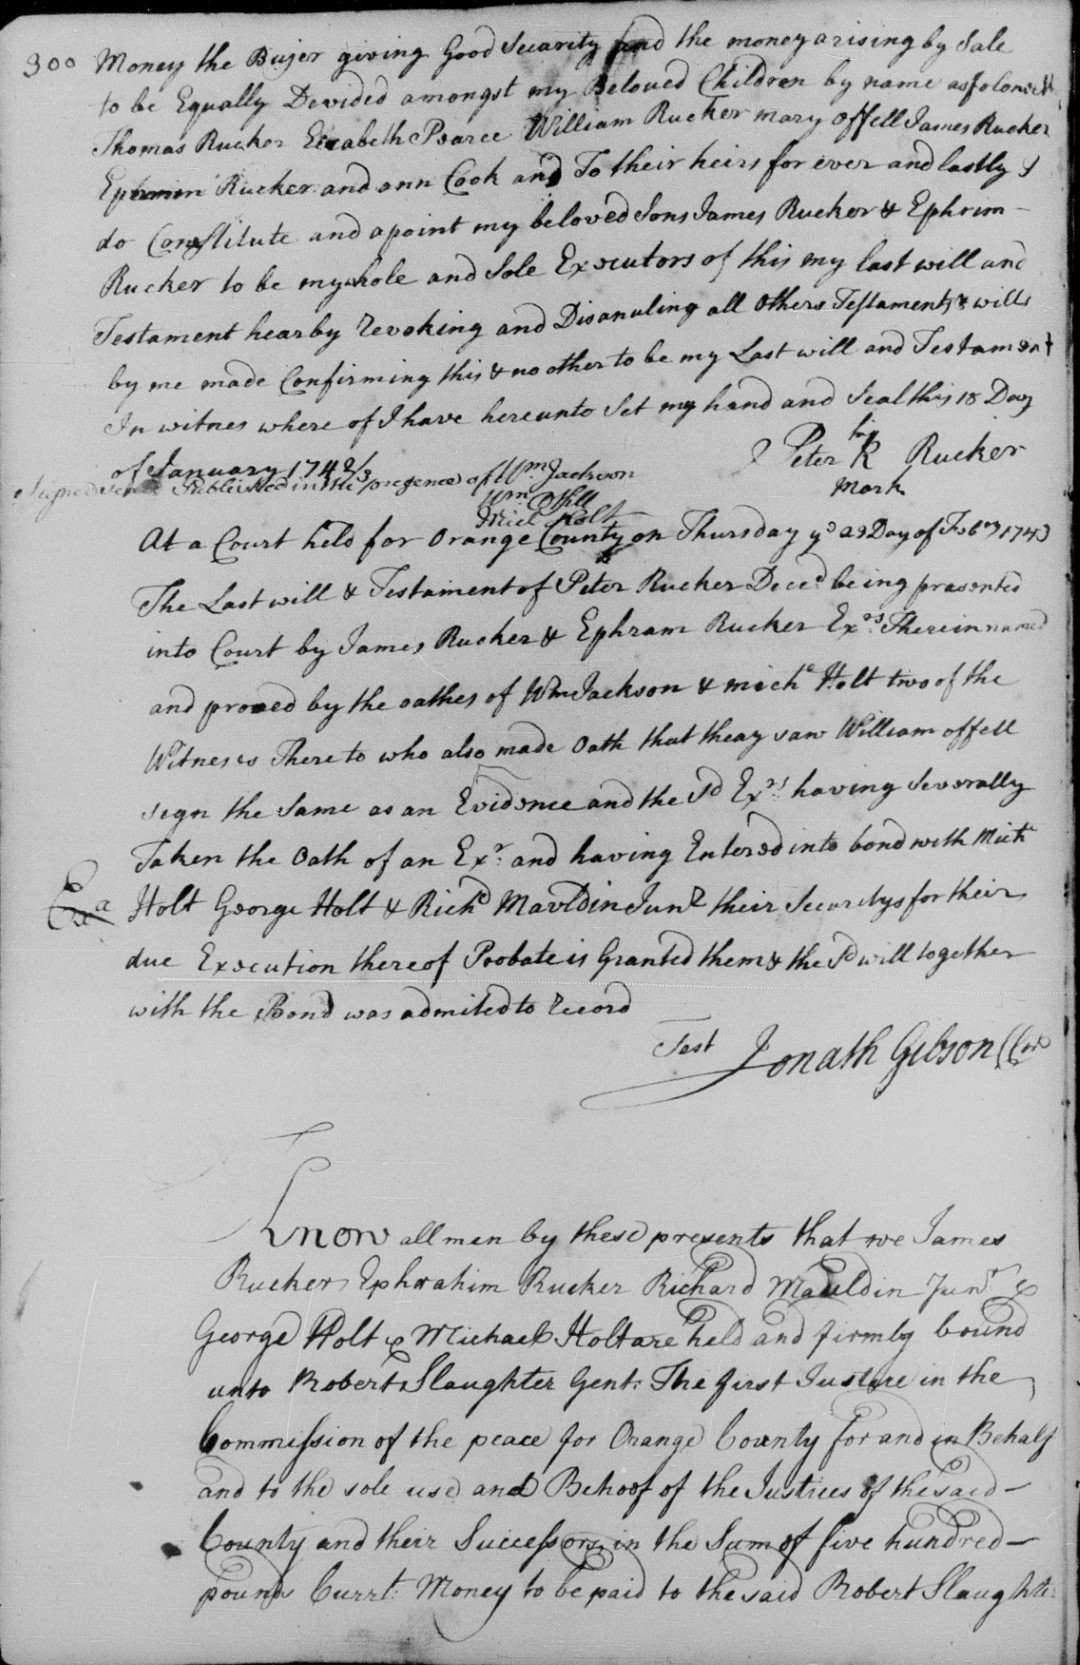 300 Money the Buyer giving Good Security and the money arising by Sale
to be Equally Devided amongst my Beloved Children by name as foloweth
Thomas Rucker Elezabeth Pearce William Rucker mary offell James Rucker
Ephraim Rucker and ann Cook and To their heirs for ever and lastly I
do Constitute and apoint my beloved Sons James Rucker & Ephrim
Rucker to be my whole and Sole Executors of this my last will and
Testament hearby revoking and Disanuling all others Testaments & wills
by me made Confirming this & no other to be my Last will and Testament
In witnes where of I have hereunto Set my hand and Seal this 18 Day
of January 1742/3 Peter his R mark Rucker
Signed Published in the presence of Wm Jackson
Wm Offill
Miel Holt
At a Court held for Orange County on Thursday ye Day of Febry 1743
The Last will & Testament of Peter Rucker Decd being presented
into Court by James Rucker & Ephram Rucker Exrs Therein named
and proved by the oathes of Wm Jackson & miche Holt two of the
Witneses There to who also made Oath that theay saw William offell
sign the Same as an Evidence and the Sd Exrs having Severally
Taken the Oath of an Exr and having Entered into bond with Miche
Exa Holt George Holt & Richd Mauldin Junr their Securitys for their
due Execution thereof Probate is Granted them & the Sd will together
with the Bond was admited to record
Test Jonath Gibson
Know all men by these presents that we James
Rucker Ephrahim Rucker Richard Mauldin Junr &
George Holt & Michael Holt are held and firmly bound
unto Robert Slaughter Gent: The first Justice in the
Commission of the peace for Orange County for and in Behalf
and to the sole use and Behoof of the Justices of the said
County and their Successors in the Sum of five hundred
pounds Currt: Money to be paid to the said Robert Slaughter